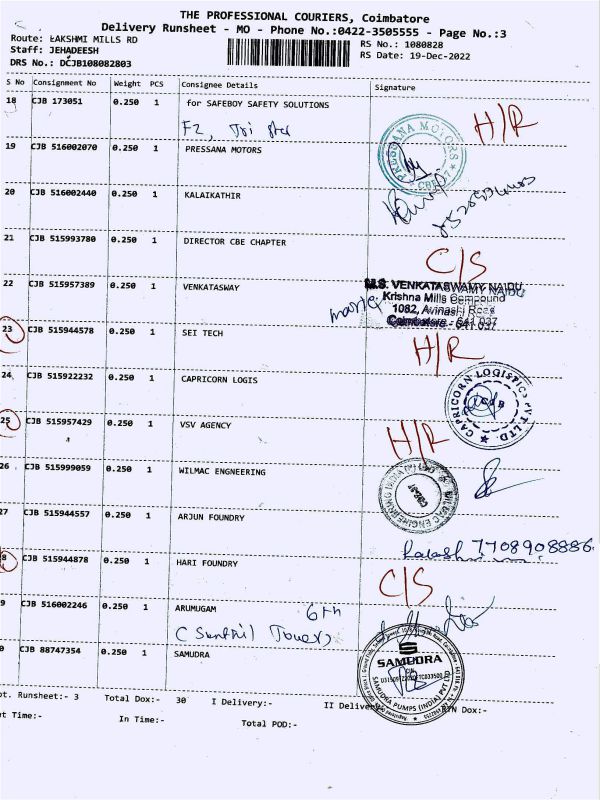 THE PROFESSIONAL COURIERS, Coimbatore
Delivery Runsheet - MO - Phone No.:0422-3505555 - Page No.:3
Route: LAKSHMI MILLS RD
RS No.: 1080828
Staff: JEHADEESH
RS Date: 19-Dec-2022
DRS No.: DCJB108082803
S No Consignment No Weight PCS Consignee Details Signature
18 CJB 173051 0.250 1 for SAFEBOY SAFETY SOLUTIONS H/R
F2, Tri Star
19 CJB 516002070 0.250 1 PRESSANA MOTORS
PRESSANA MOTORS
20 CJB 516002440 0.250 1 KALAIKATHIR
21 CJB 515993780 0.250 1 DIRECTOR CBE CHAPTER C/S
22 CJB 515957389 0.250 1 VENKATASWAY
M.S. VENKATASWAMY NAIDU
Krishna Mills Compound
1082, Avinashi Road
Coimbatore - 641 037
23 CJB 515944578 0.250 1 SEI TECH H/R
24 CJB 515922232 0.250 1 CAPRICORN LOGIS
CAPRICORN LOGISTICS PVT LTD
25 CJB 515957429 0.250 1 VSV AGENCY H/R
26 CJB 515999059 0.250 1 WILMAC ENGNEERING
27 CJB 515944557 0.250 1 ARJUN FOUNDRY
7708908886
8 CJB 515944878 0.250 1 HARI FOUNDRY C/S
9 CJB 516002246 0.250 1 ARUMUGAM 6th
(Senthil Towers)
0 CJB 88747354 0.250 1 SAMUDRA
SAMUDRA
SAMUDRA PUMPS (INDIA) PVT LTD
ot. Runsheet:- 3 Total Dox:- 30 I Delivery:- II Delivery:- Dox:-
t Time:- In Time:- Total POD:-